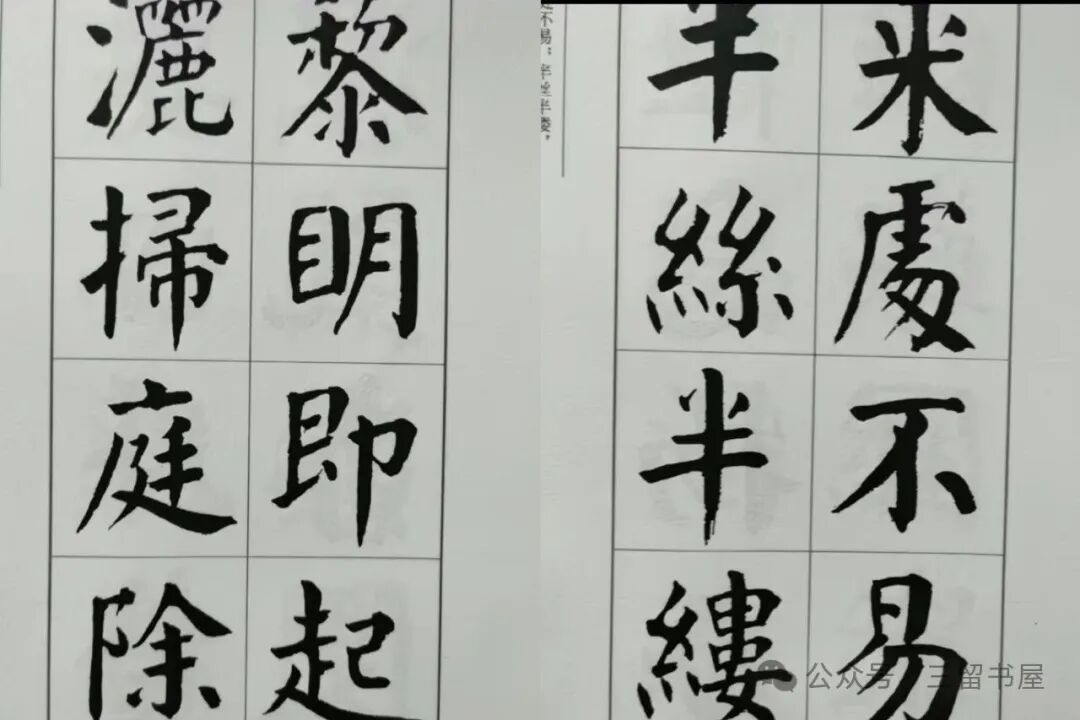 黎明即起
灑掃庭除
米處不易
半絲半縷
不易；半丝半缕，
公众号
三留书屋